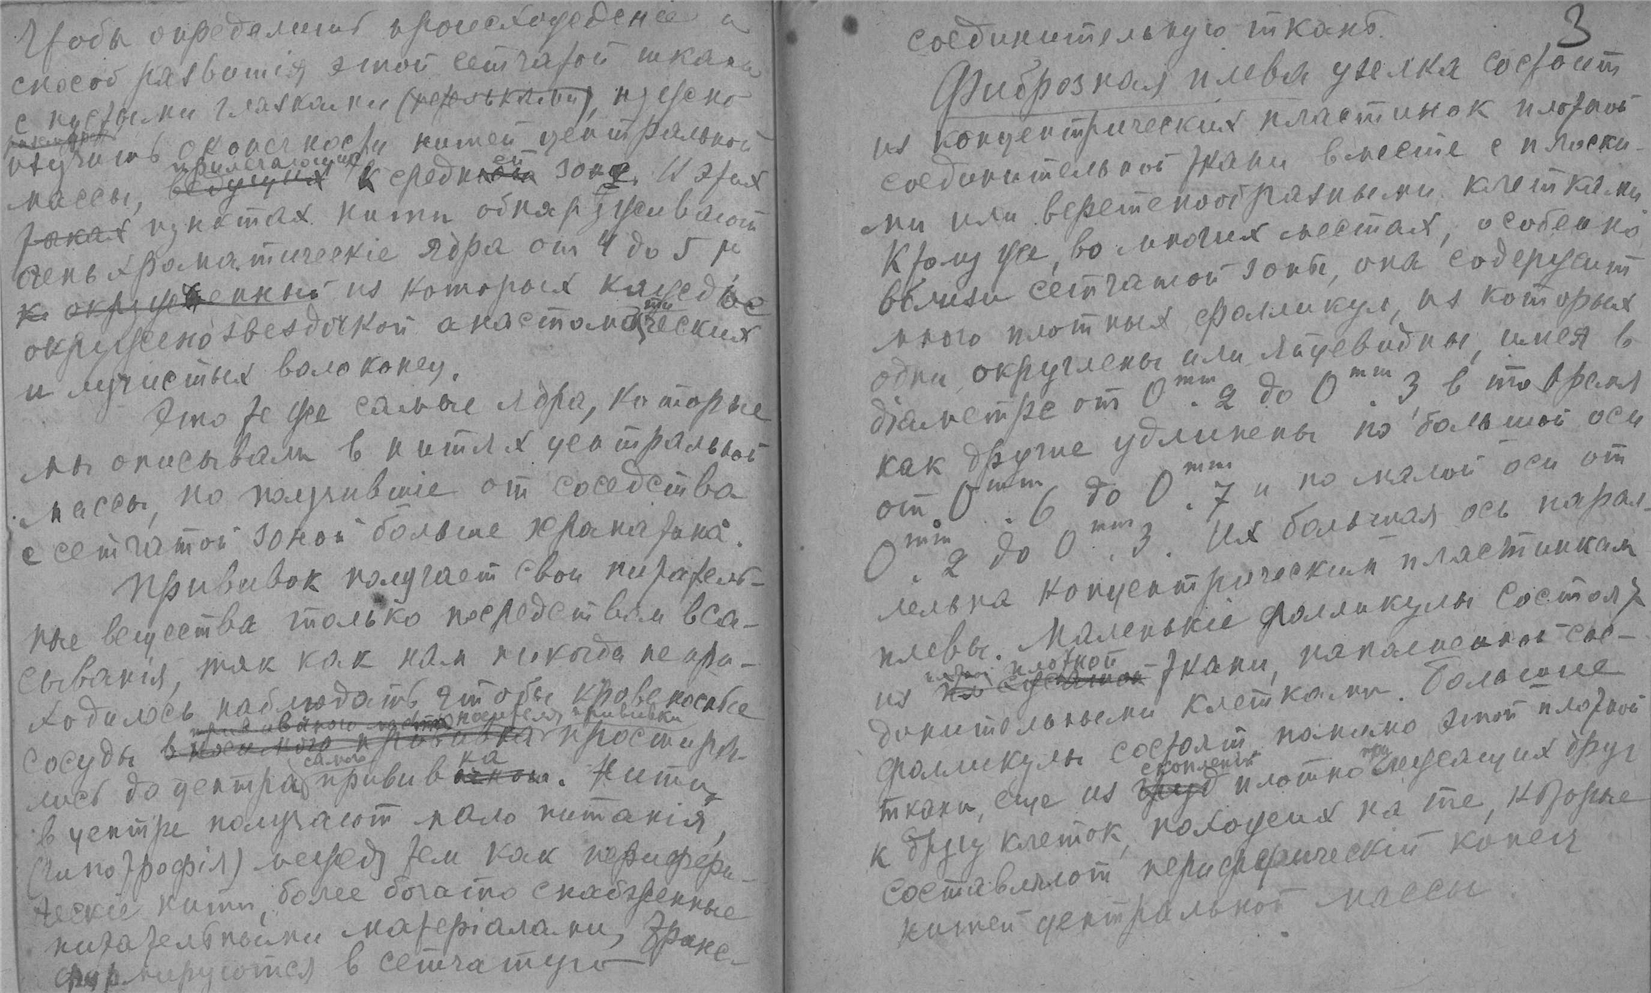 Чтобы определить происхождение и
способ развития этой сетчатой ткани
с пустыми глазками (петельками), нужно
изучить оконечности нитей центральной
массы, прилегающих к средней зоне. В этих
пунктах нити обнаруживают
очень хроматическіе ядра от 4 до 5 μ
к окруженный из которых каждое
окружено звездочкой анастомотических
и лучистых волоконец.
Это те же самые ядра, которые
мы описывали в нитях центральной
массы, но получившіе от соседства
с сетчатой зоной больше хроматина.
Прививок получает свои питатель-
ные вещества только посредством вса-
сыванія, так как нам никогда не при-
ходилось наблюдать, чтобы кровеносные
прививаного места носителя прививки
сосуды в носимого прививка простира-
лись до центра самого прививка. Нити,
в центре получают мало питанія,
(гипотрофія) между тем как перифери-
ческіе нити, более богато снабженные
питательными матеріалами, транс-
формируются в сетчатую
3
соединительную ткань.
Фиброзная плева узелка состоит
из концентрических пластинок плотной
соединительной ткани вместе с плоски-
ми или веретенообразными клетками
К тому же, во многих местах, особенно
вблизи сетчатой зоны, она содержит
много плотных фолликул, из которых
одни округлены или яйцевидны, имея в
діаметре от 0mm.2 до 0mm.3 в то время
как другие удлинены по большой оси
от 0mm.6 до 0mm.7 и по малой оси от
0mm.2 до 0mm.3. Их большая ось парал-
лельна концентрическим пластинкам
плевы. Маленькіе фолликулы состоят
из плотной ткани, наполненной сое-
динительными клетками. Большие
фолликулы состоят помимо этой плотной
ткани, еще из скопления плотно прилежащих друг
к другу клеток, похожих на те, которые
составляют периферический конец
нитей центральной массы.